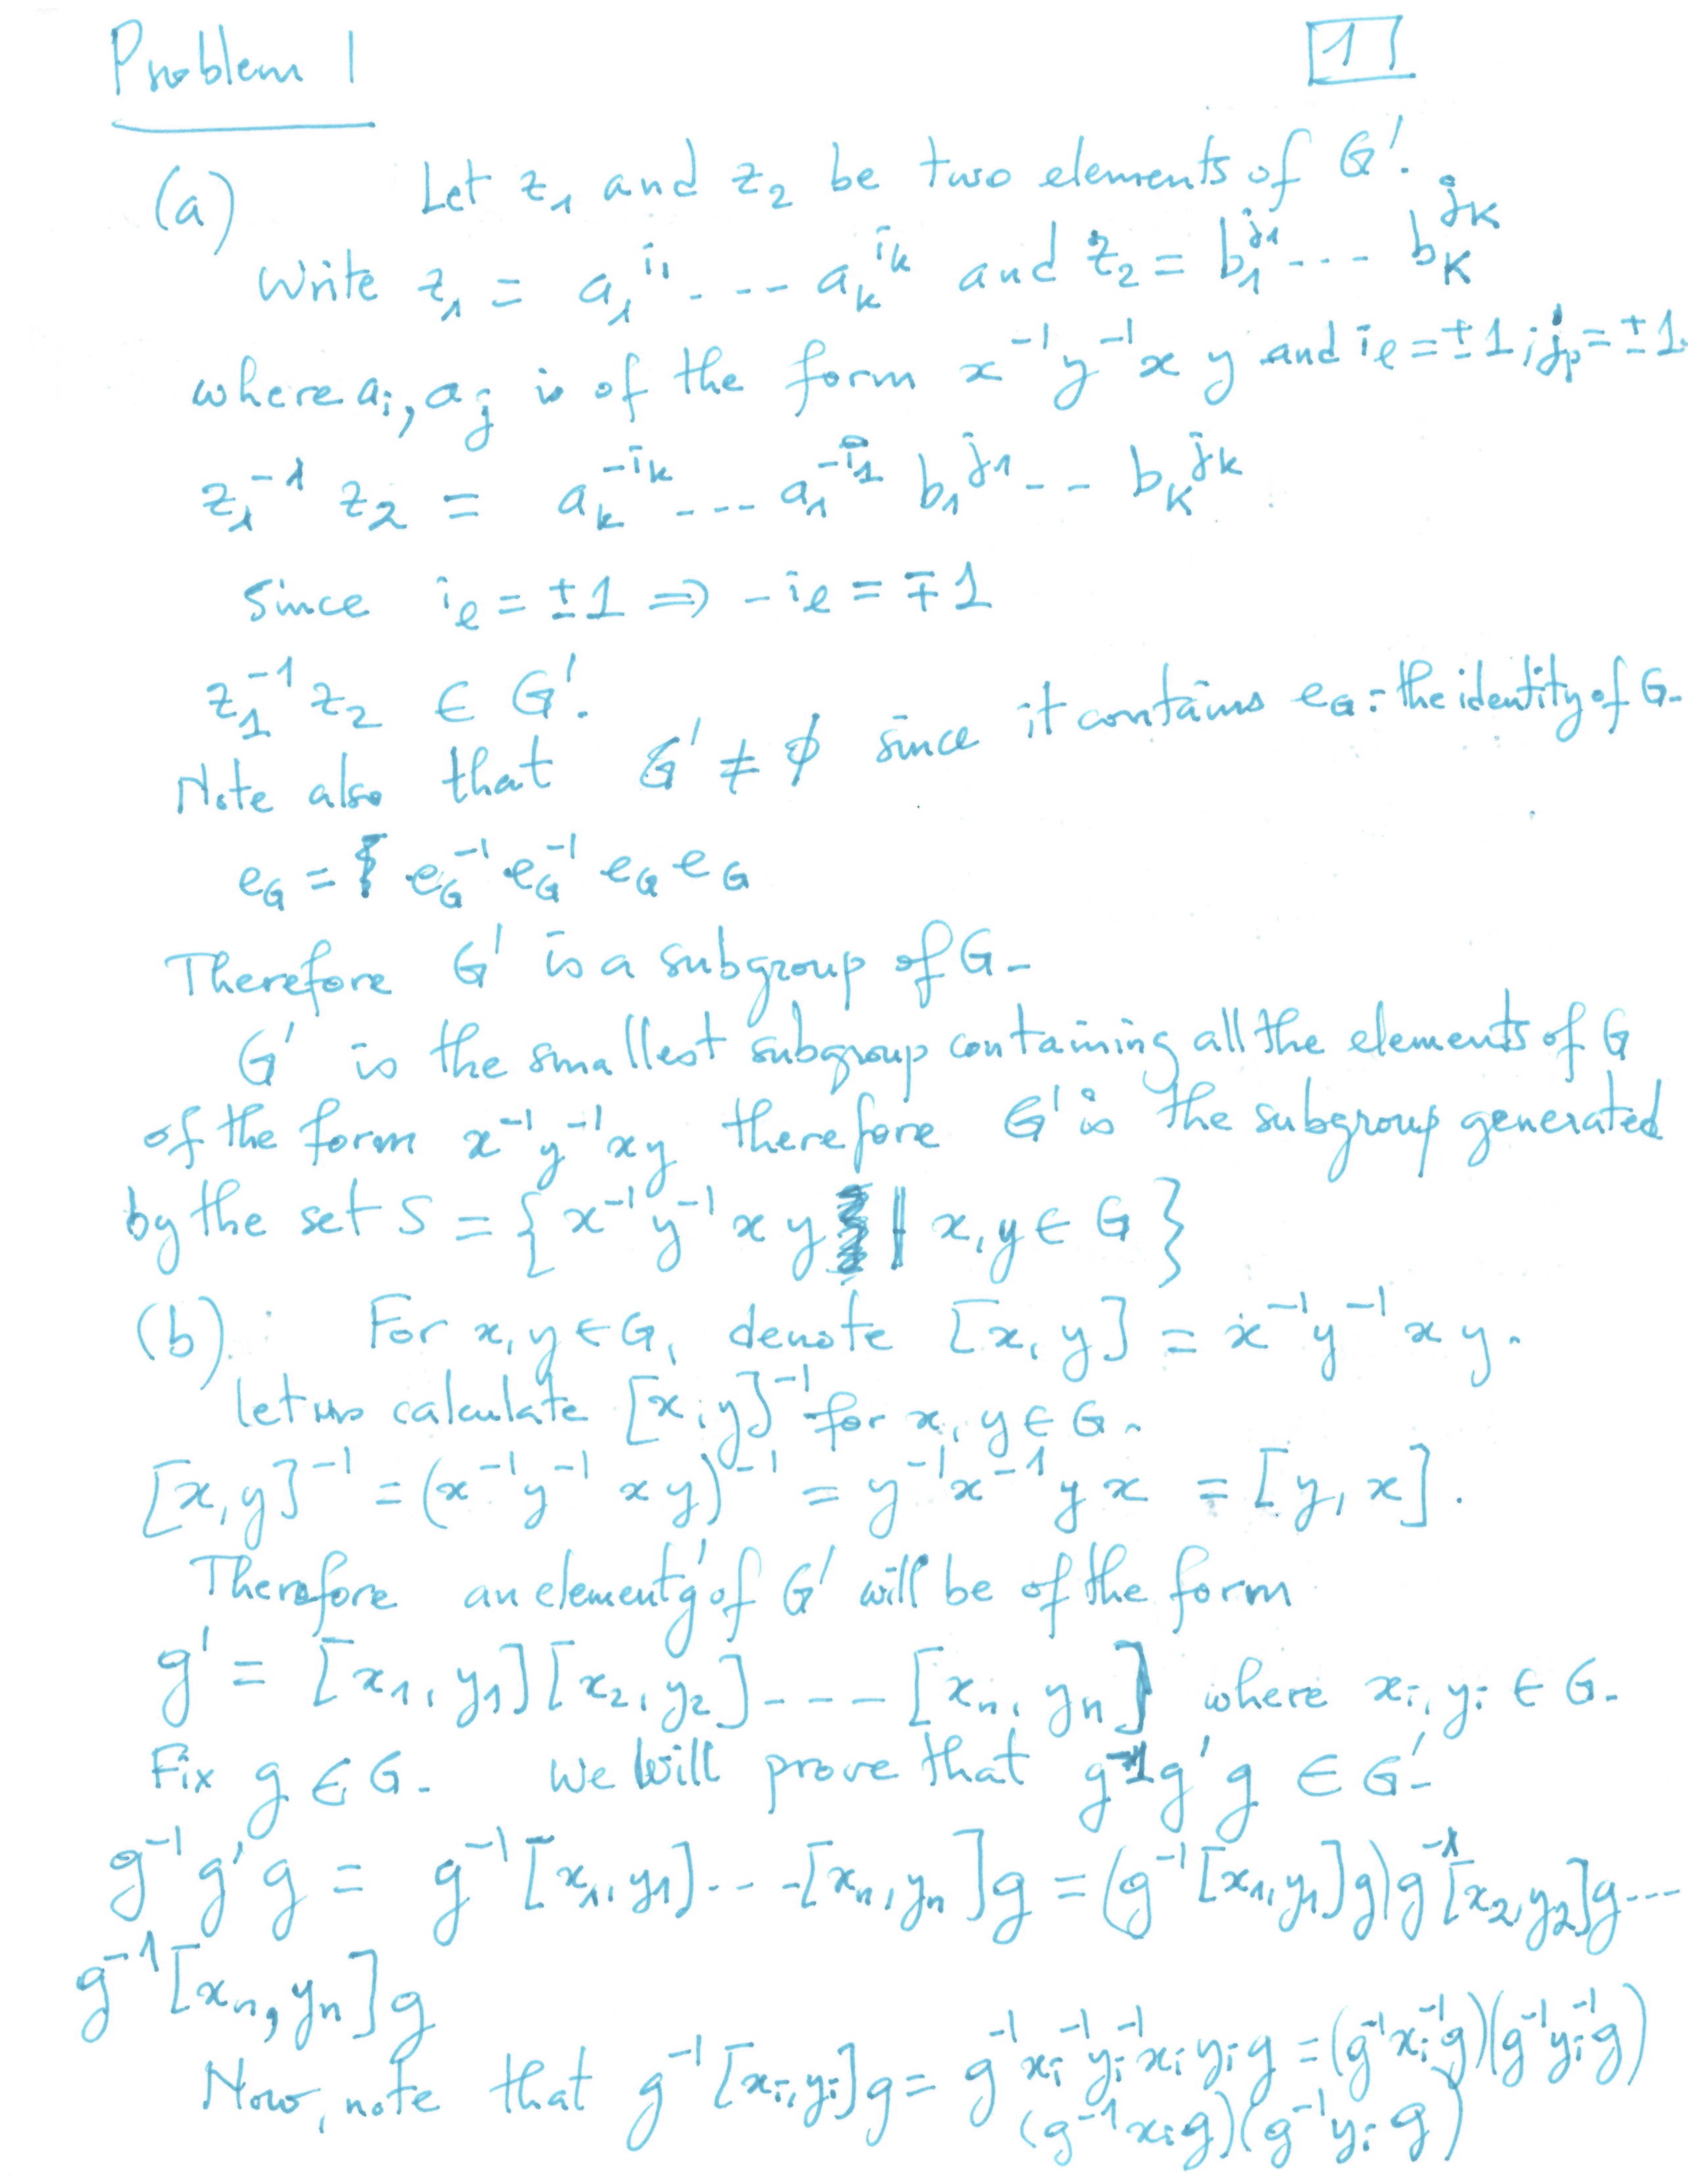 Problem 1
1
(a) Let z₁ and z₂ be two elements of G'.
Write z₁ = a₁^{i₁} ... a_k^{i_k} and z₂ = b₁^{j₁} ... b_k^{j_k}
where a_i, a_j is of the form x⁻¹y⁻¹x y and i_l = ±1, j_p = ±1.
z₁⁻¹ z₂ = a_k^{-i_k} ... a₁^{-i₁} b₁^{j₁} ... b_k^{j_k}
Since i_l = ±1 ⇒ -i_l = ∓1
z₁⁻¹ z₂ ∈ G'.
Note also that G' ≠ ∅ since it contains e_G: the identity of G.
e_G = e_G⁻¹ e_G⁻¹ e_G e_G
Therefore G' is a subgroup of G.
G' is the smallest subgroup containing all the elements of G
of the form x⁻¹y⁻¹xy therefore G' is the subgroup generated
by the set S = { x⁻¹y⁻¹ x y | x, y ∈ G }
(b): For x, y ∈ G, denote [x, y] = x⁻¹y⁻¹ x y.
let us calculate [x, y]⁻¹ for x, y ∈ G.
[x, y]⁻¹ = (x⁻¹y⁻¹ x y)⁻¹ = y⁻¹x⁻¹y x = [y, x].
Therefore an element g' of G' will be of the form
g' = [x₁, y₁][x₂, y₂] ---- [x_n, y_n] where x_i, y_i ∈ G.
Fix g ∈ G. We will prove that g⁻¹g'g ∈ G'.
g⁻¹g'g = g⁻¹[x₁, y₁]...[x_n, y_n]g = (g⁻¹[x₁, y₁]g)g⁻¹[x₂, y₂]g...
g⁻¹[x_n, y_n]g
Now, note that g⁻¹[x_i, y_i]g = g⁻¹x_i⁻¹y_i⁻¹x_i y_i g = (g⁻¹x_i⁻¹g)(g⁻¹y_i⁻¹g)
(g⁻¹x_i g)(g⁻¹y_i g)